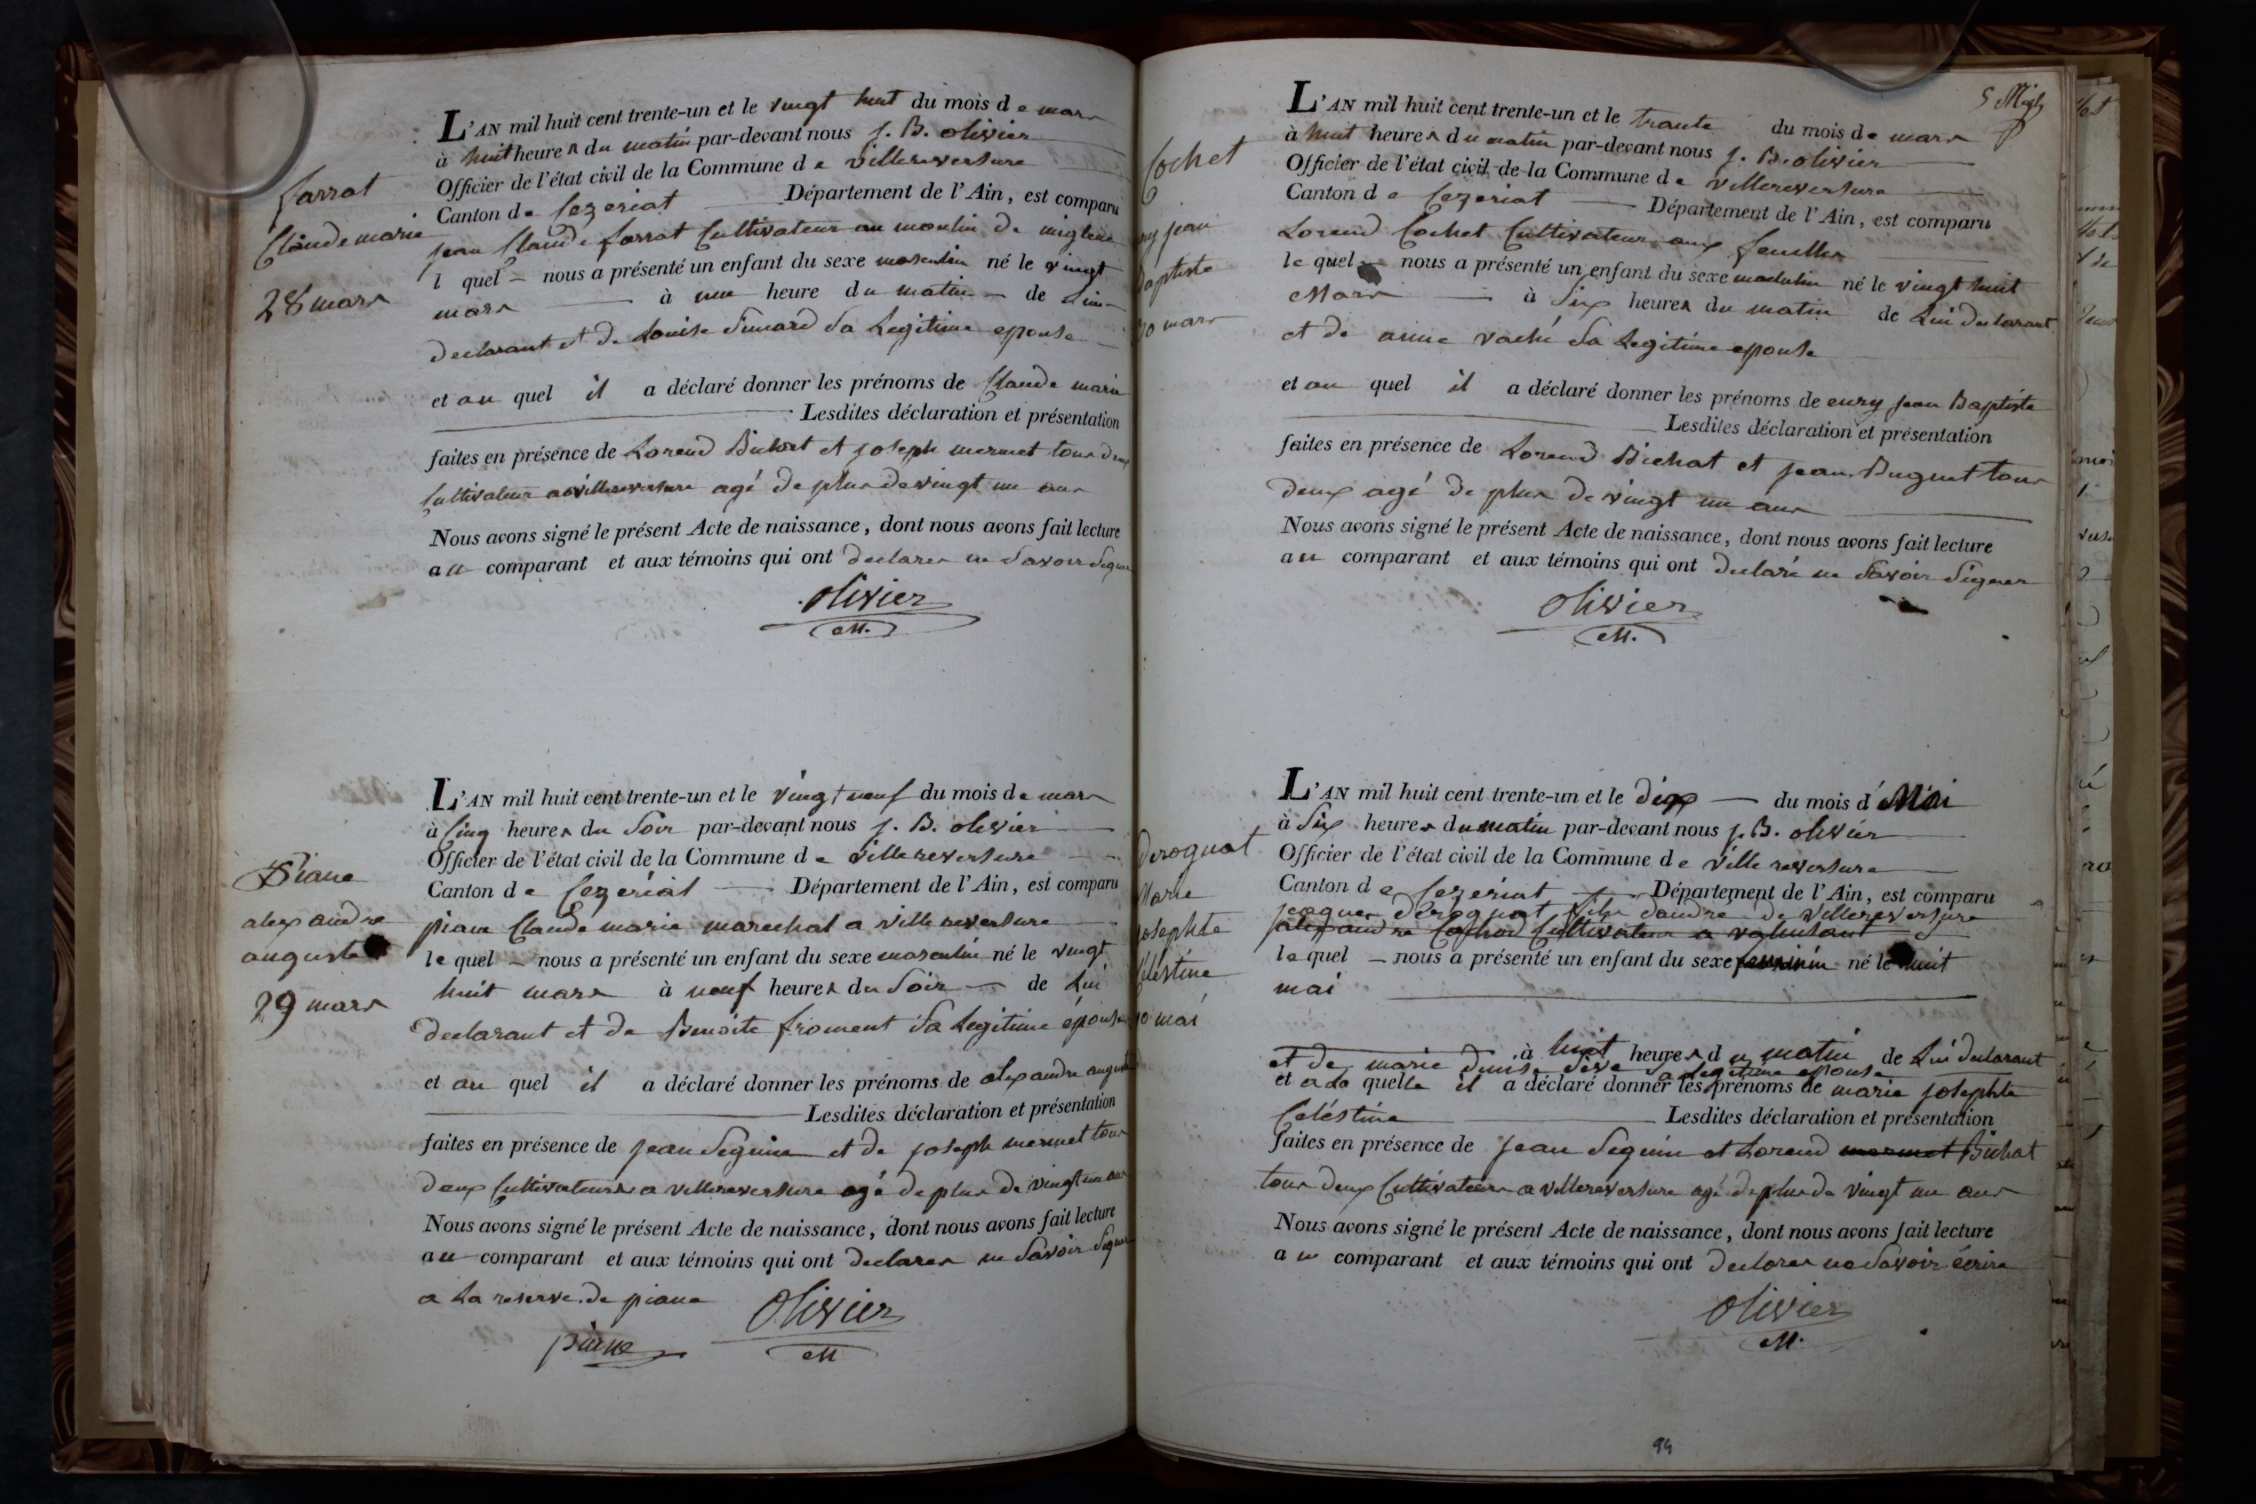 Farrat
Claude marie
28 mars
L'AN mil huit cent trente-un et le vingt huit du mois de mars
à huit heures du matin par-devant nous J. B. olivier
Officier de l'état civil de la Commune de villereversure
Canton de Cezeriat Département de l'Ain, est comparu
jean Claude farrat Cultivateur au moulin de
l quel nous a présenté un enfant du sexe masculin né le vingt
mars à une heure du matin de Lui
declarant et de Louise Simard Sa Legitime epouse
et au quel il a déclaré donner les prénoms de Claude marie
Lesdites déclaration et présentation
faites en présence de Lorend Bichat et joseph mermet tous deux
Cultivateur a villereversure agé de plus de vingt un ans
Nous avons signé le présent Acte de naissance, dont nous avons fait lecture
au comparant et aux témoins qui ont declarer ne Savoir Signer
olivier
M.
Piane
alexandre
auguste
29 mars
L'AN mil huit cent trente-un et le vingt neuf du mois de mars
à Cinq heures du Soir par-devant nous J. B. olivier
Officier de l'état civil de la Commune de villereversure
Canton de Cezeriat Département de l'Ain, est comparu
piane Claude marie marechal a villereversure
le quel nous a présenté un enfant du sexe masculin né le vingt
huit mars à neuf heures du Soir de Lui
declarant et de Benoite froment Sa Legitime épouse
et au quel il a déclaré donner les prénoms de alexandre auguste
Lesdites déclaration et présentation
faites en présence de jean Seguin et de joseph mermet tous
deux Cultivateurs a villereversure agé de plus de vingt un ans
Nous avons signé le présent Acte de naissance, dont nous avons fait lecture
au comparant et aux témoins qui ont declarer ne Savoir Signer
a La reserve de piane
piane
Olivier
M
5
Cochet
jean
Baptiste
30 mars
L'AN mil huit cent trente-un et le trante du mois de mars
à huit heures du matin par-devant nous J. B. olivier
Officier de l'état civil de la Commune de villereversure
Canton de Cezeriat Département de l'Ain, est comparu
Lorend Cochet Cultivateur aux feuilles
le quel nous a présenté un enfant du sexe masculin né le vingt huit
Mars à Six heures du matin de Lui declarant
et de anne vaché Sa Legitime epouse
et au quel il a déclaré donner les prénoms de eury jean Baptiste
Lesdites déclaration et présentation
faites en présence de Lorend Bichat et jean Buguet tous
deux agé de plus de vingt un ans
Nous avons signé le présent Acte de naissance, dont nous avons fait lecture
au comparant et aux témoins qui ont declaré ne Savoir Signer
Olivier
M.
Derognat
Marie
josephte
Céléstine
10 mai
L'AN mil huit cent trente-un et le dix du mois d Mai
à Six heures du matin par-devant nous J. B. olivier
Officier de l'état civil de la Commune de villereversure
Canton de Cezeriat Département de l'Ain, est comparu
jacques Derognat de villereversure
alexandre Cultivateur a
le quel nous a présenté un enfant du sexe feminin né le huit
mai
à huit heures du matin de Lui declarant
et de marie denise Sa Legitime epouse
et a la quelle il a déclaré donner les prénoms de marie josephte
Celéstine Lesdites déclaration et présentation
faites en présence de jean Seguin et Lorend mermet Bichat
tous deux Cultivateurs a villereversure agé de plus de vingt un ans
Nous avons signé le présent Acte de naissance, dont nous avons fait lecture
au comparant et aux témoins qui ont declarer ne Savoir écrire
Olivier
M.
94